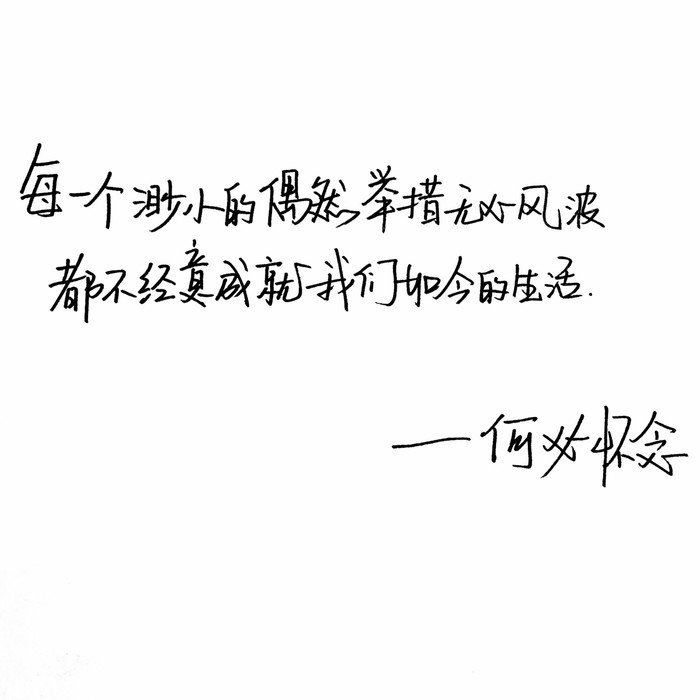 每一个渺小的偶然举措无必风波
都不经意成就我们如今的生活.
——何必怀念